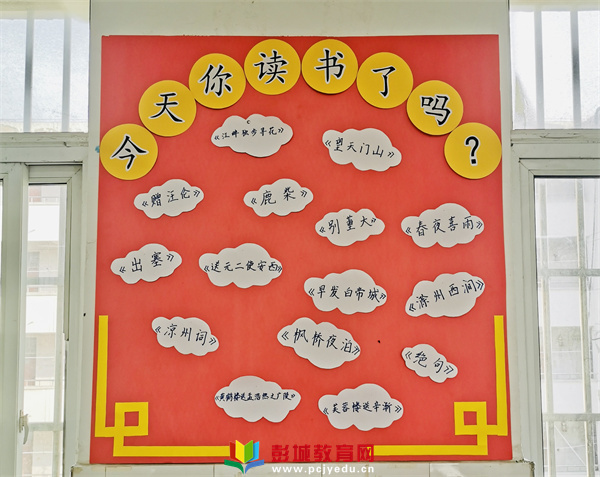 今天你读书了吗?
《江畔独步寻花》
《望天门山》
《赠汪伦》
《鹿柴》
《别董大》
《春夜喜雨》
《出塞》
《送元二使安西》
《早发白帝城》
《滁州西涧》
《凉州词》
《枫桥夜泊》
《绝句》
《黄鹤楼送孟浩然之广陵》
《芙蓉楼送辛渐》
彭城教育网
www.pcjyedu.cn